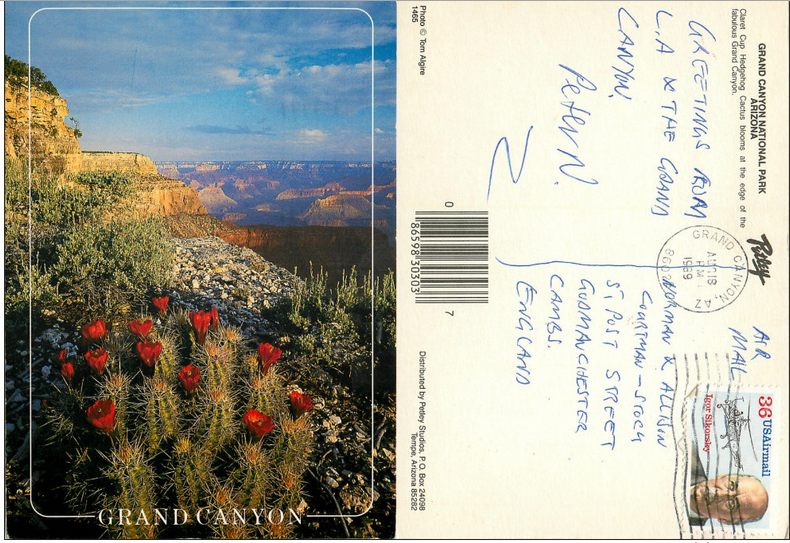 GRAND CANYON
GRAND CANYON NATIONAL PARK
ARIZONA
Claret Cup Hedgehog Cactus blooms at the edge of the
fabulous Grand Canyon.
Petley
Photo © Tom Algire
1465
GREETINGS FROM
L.A & THE GRAND
CANYON.
Peter N.
GRAND CANYON, AZ
AUG 18
PM
1989
AIR
MAIL
36 USAirmail
Igor Sikorsky
NORMAN & ALLISON
COURTMAN-STOCK
51, POST STREET
GODMANCHESTER
CAMBS.
ENGLAND
0 86598 30303 7
Distributed by Petley Studios, P.O. Box 24098
Tempe, Arizona 85282